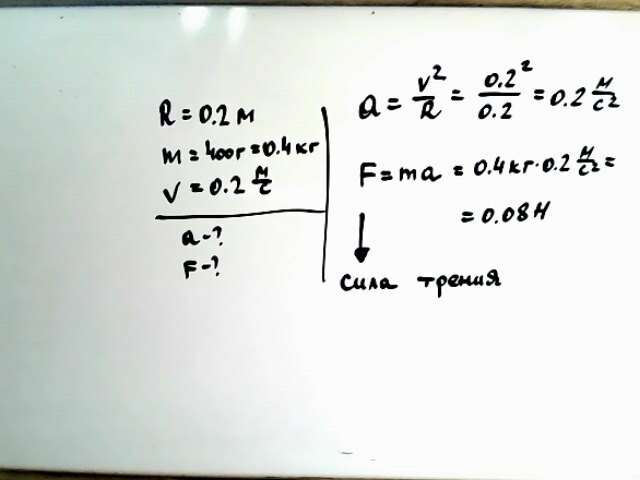 R = 0.2 м
m = 400г = 0.4 кг
v = 0.2 м/с
a - ?
F - ?
a = v²/R = 0.2²/0.2 = 0.2 м/с²
F = ma = 0.4 кг · 0.2 м/с² =
= 0.08 Н
↓
сила трения